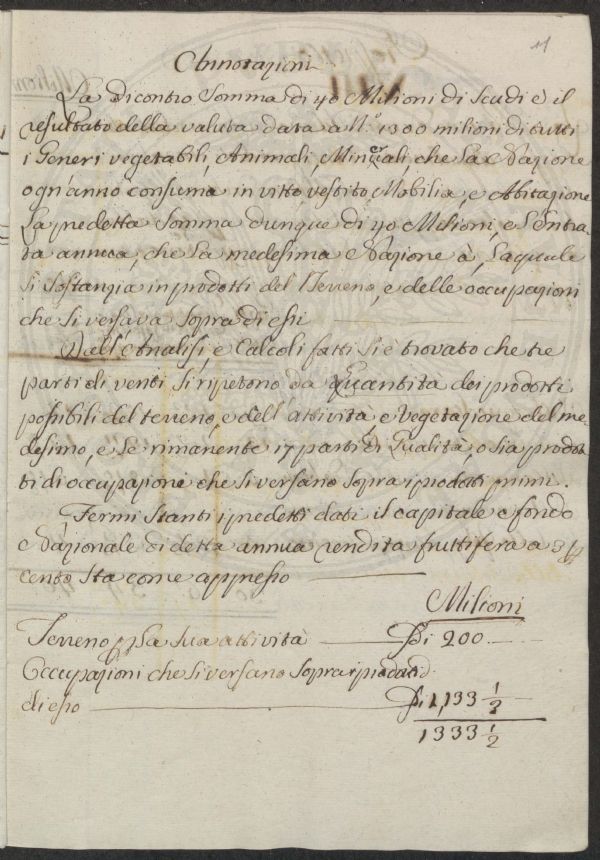 11
Annotazioni
La dicontro Somma di 40 Milioni di Scudi è il
resultato della valuta data a N.º 1300 milioni di tutti
i Generi vegetabili, Animali, Minerali, che La Nazione
ogn'anno consuma in vitto, vestito, Mobilia, e Abitazione
La predetta Somma dunque di 40 Milioni, e L'Entra-
ta annua, che La medesima Nazione à, Laquale
Si Sostanzia in prodotti del Terreno, e delle occupazioni
che Si versava Sopra di essi
Dall'Analisi, e Calcoli fatti Si è trovato che tre
parti di venti Si ripetono da Quantità dei prodotti
possibili del terreno, e dell'attività, e Vegetazione del me-
desimo, e Le rimanente 17 parti di Qualità, o sia prodot-
ti di occupazione che Si versano Sopra i prodotti primi.
Fermi Stanti i predetti dati il capitale o fondo
Nazionale di detta annua rendita fruttifera a 3 p
cento Sta come appresso
Milioni
Terreno p La Sua attività Di 200
Occupazioni che Si versano Sopra i prodotti
di esso Di 1,133 1/3
1333 1/2